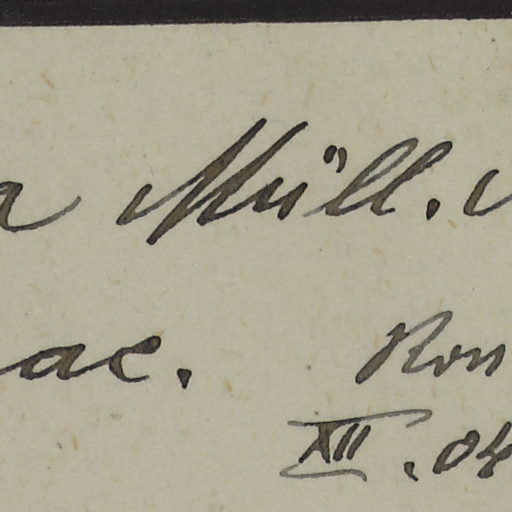 a Müll.
ae. Ron
XII.04